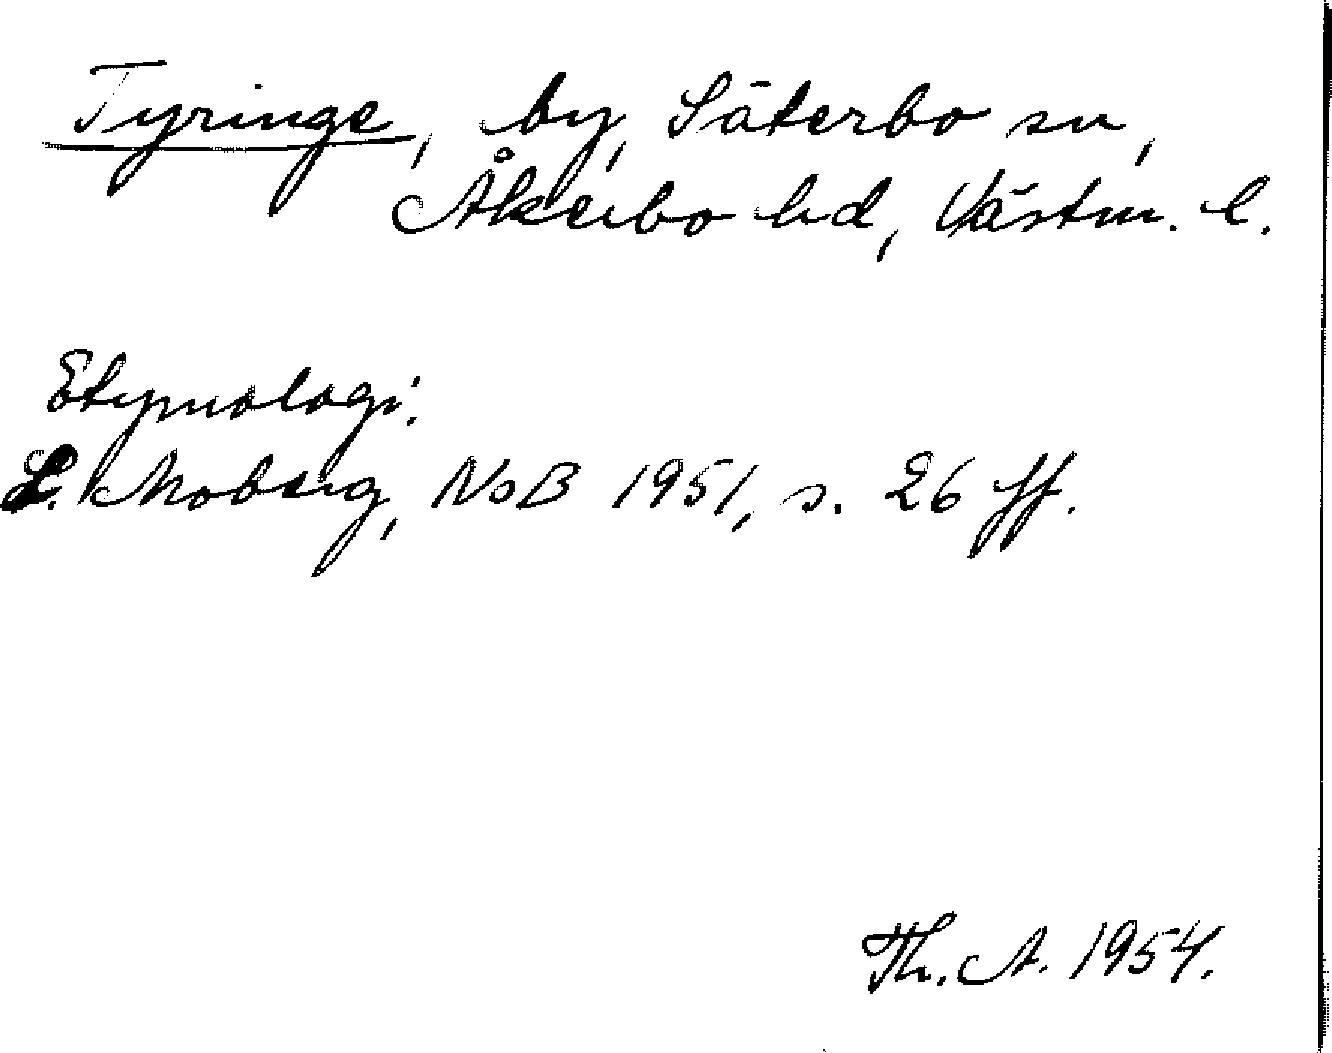 Tyringe, by, Säterbo sn,
Åkerbo hd, Västm. l.
Etymologi.
L. Moberg, NoB 1951, s. 26 ff.
Th. A. 1954.